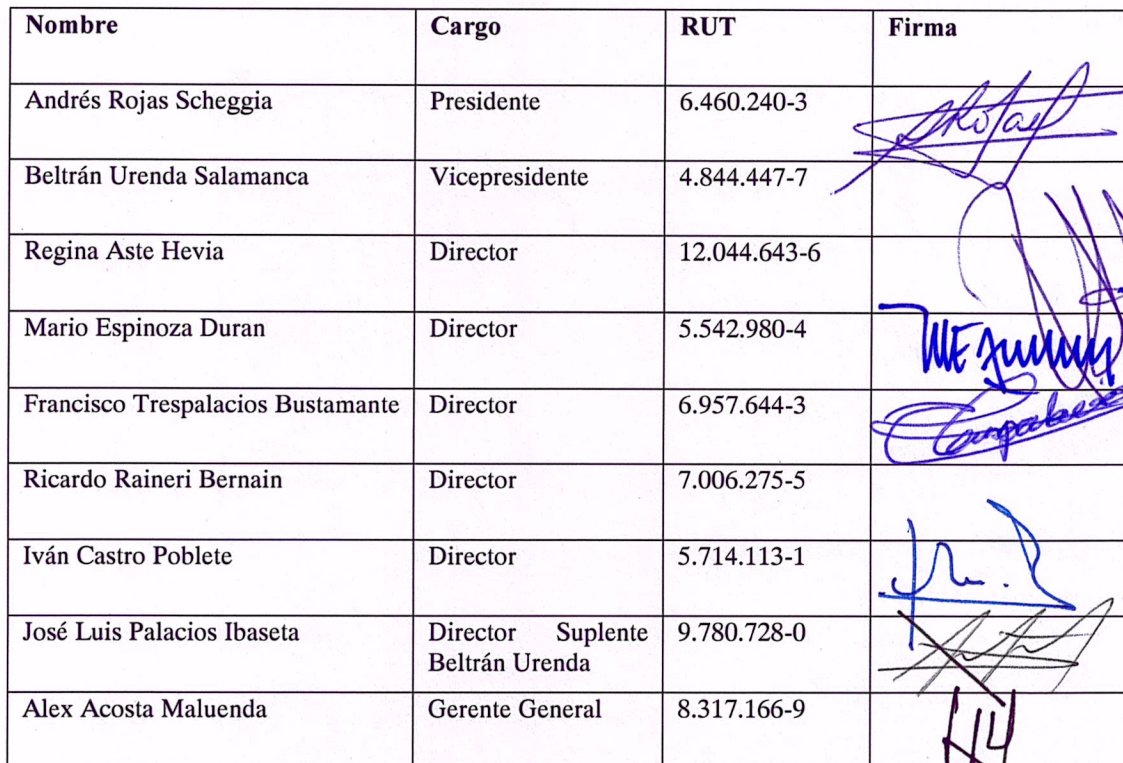 Nombre Cargo RUT Firma
Andrés Rojas Scheggia Presidente 6.460.240-3
Beltrán Urenda Salamanca Vicepresidente 4.844.447-7
Regina Aste Hevia Director 12.044.643-6
Mario Espinoza Duran Director 5.542.980-4
Francisco Trespalacios Bustamante Director 6.957.644-3
Ricardo Raineri Bernain Director 7.006.275-5
Iván Castro Poblete Director 5.714.113-1
José Luis Palacios Ibaseta Director Suplente 9.780.728-0
Beltrán Urenda
Alex Acosta Maluenda Gerente General 8.317.166-9